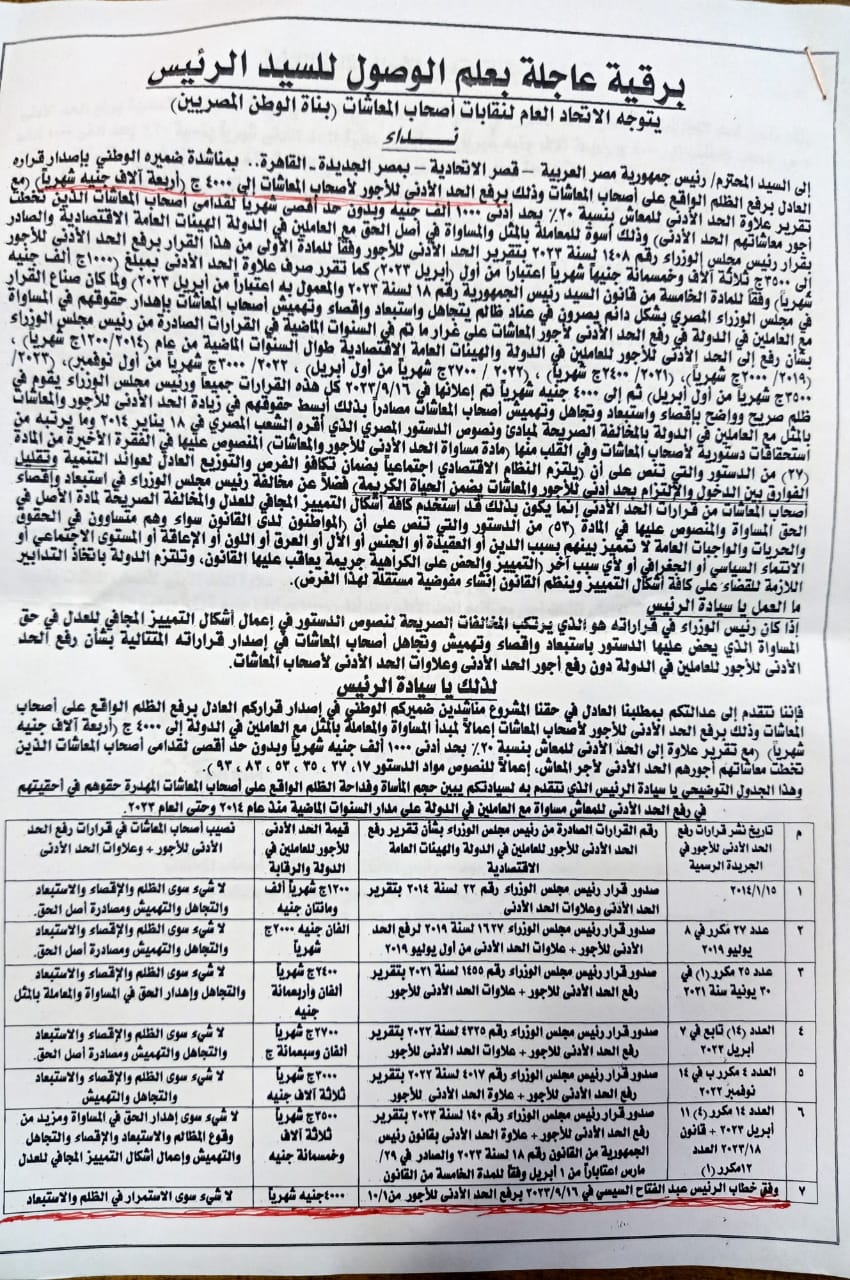 برقية عاجلة بعلم الوصول للسيد الرئيس
يتوجه الاتحاد العام لنقابات أصحاب المعاشات (بناة الوطن المصريين)
نـــداء
إلى السيد المحترم/ رئيس جمهورية مصر العربية – قصر الاتحادية – بمصر الجديدة - القاهرة. بمناشدة ضميره الوطني بإصدار قراره
العادل برفع الظلم الواقع على أصحاب المعاشات وذلك برفع الحد الأدنى للأجور لأصحاب المعاشات إلى ٤٠٠٠ ج (أربعة آلاف جنيه شهرياً) (مع
تقرير علاوة الحد الأدنى للمعاش بنسبة ٢٠٪ بحد أدنى ١٠٠٠ ألف جنيه وبدون حد أقصى شهرياً لقدامى أصحاب المعاشات الذين تخطت
أجور معاشاتهم الحد الأدنى) وذلك أسوة للمعاملة بالمثل والمساواة في أصل الحق مع العاملين في الدولة الهيئات العامة الاقتصادية والصادر
بقرار رئيس مجلس الوزراء رقم ١٤٠٨ لسنة ٢٠٢٣ بتقرير الحد الأدنى للأجور وفقاً للمادة الأولى من هذا القرار برفع الحد الأدنى للأجور
إلى ٣٥٠٠ج ثلاثة آلاف وخمسمائة جنيهاً شهرياً اعتباراً من أول (أبريل ٢٠٢٣) كما تقرر صرف علاوة الحد الأدنى بمبلغ (١٠٠٠ج ألف جنيه
شهرياً) وفقاً للمادة الخامسة من قانون السيد رئيس الجمهورية رقم ١٨ لسنة ٢٠٢٣ والمعمول به اعتباراً من أبريل ٢٠٢٣) ولما كان صناع القرار
في مجلس الوزراء المصري بشكل دائم يصرون في عناد ظالم يتجاهل واستبعاد وإقصاء وتهميش أصحاب المعاشات بإهدار حقوقهم في المساواة
مع العاملين في الدولة في رفع الحد الأدنى لأجور المعاشات على غرار ما تم في السنوات الماضية في القرارات الصادرة من رئيس مجلس الوزراء
بشأن رفع إلى الحد الأدنى للأجور للعاملين في الدولة والهيئات العامة الاقتصادية طوال السنوات الماضية من عام (٢٠١٤/ ١٢٠٠ج شهرياً) ،
(٢٠١٩/ ٢٠٠٠ج شهرياً)، (٢٠٢١/ ٢٤٠٠ج شهرياً) ، (٢٠٢٢ / ٢٧٠٠ج شهرياً من أول أبريل) ، ٢٠٢٢/ ٣٠٠٠ج شهرياً من أول نوفمبر)، (٢٠٢٣/
٣٥٠٠ج شهرياً من أول أبريل) ثم إلى ٤٠٠٠ جنيه شهرياً تم إعلانها في ٢٠٢٣/٩/١٦ كل هذه القرارات جميعاً ورئيس مجلس الوزراء يقوم في
ظلم صريح وواضح بإقصاء واستبعاد وتجاهل وتهميش أصحاب المعاشات مصادراً بذلك أبسط حقوقهم في زيادة الحد الأدنى للأجور والمعاشات
بالمثل مع العاملين في الدولة بالمخالفة الصريحة لمبادئ ونصوص الدستور المصري الذي أقره الشعب المصري في ١٨ يناير ٢٠١٤ وما يرتبه من
استحقاقات دستورية لأصحاب المعاشات وفي القلب منها (مادة مساواة الحد الأدنى للأجور والمعاشات) المنصوص عليها في الفقرة الأخيرة من المادة
(٢٧) من الدستور والتي تنص على أن (يلتزم النظام الاقتصادي اجتماعياً بضمان تكافؤ الفرص والتوزيع العادل لعوائد التنمية وتقليل
الفوارق بين الدخول والإلتزام بحد أدنى للأجور والمعاشات يضمن الحياة الكريمة) فضلاً عن مخالفة رئيس مجلس الوزراء في استبعاد وإقصاء
أصحاب المعاشات من قرارات الحد الأدنى إنما يكون بذلك قد استخدم كافة أشكال التمييز المجافي للعدل والمخالفة الصريحة لمادة الأصل في
الحق المساواة والمنصوص عليها في المادة (٥٣) من الدستور والتي تنص على أن (المواطنون لدى القانون سواء وهم متساوون في الحقوق
والحريات والواجبات العامة لا تمييز بينهم بسبب الدين أو العقيدة أو الجنس أو الأل أو العرق أو اللون أو الإعاقة أو المستوى الاجتماعي أو
الانتماء السياسي أو الجغرافي أو لأي سبب آخر (التمييز والحض على الكراهية جريمة يعاقب عليها القانون، وتلتزم الدولة باتخاذ التدابير
اللازمة للقضاء على كافة أشكال التمييز وينظم القانون إنشاء مفوضية مستقلة لهذا الغرض).
ما العمل يا سيادة الرئيس
إذا كان رئيس الوزراء في قراراته هو الذي يرتكب المخالفات الصريحة لنصوص الدستور في إعمال أشكال التمييز المجافي للعدل في حق
المساواة الذي يحض عليها الدستور باستبعاد وإقصاء وتهميش وتجاهل أصحاب المعاشات في إصدار قراراته المتتالية بشأن رفع الحد
الأدنى للأجور للعاملين في الدولة دون رفع أجور الحد الأدنى وعلاوات الحد الأدنى لأصحاب المعاشات.
لذلك يا سيادة الرئيس
فإننا نتقدم إلى عدالتكم بمطلبنا العادل في حقنا المشروع مناشدين ضميركم الوطني في إصدار قراركم العادل برفع الظلم الواقع على أصحاب
المعاشات وذلك برفع الحد الأدنى للأجور لأصحاب المعاشات إعمالاً لمبدأ المساواة والمعاملة بالمثل مع العاملين في الدولة إلى ٤٠٠٠ ج (أربعة آلاف جنيه
شهرياً) (مع تقرير علاوة إلى الحد الأدنى للمعاش بنسبة ٢٠٪ بحد أدنى ١٠٠٠ ألف جنيه شهرياً وبدون حد أقصى لقدامى أصحاب المعاشات الذين
تخطت معاشاتهم أجورهم الحد الأدنى لأجر المعاش، إعمالاً للنصوص مواد الدستور ١٧، ٢٧ ، ٣٥ ، ٥٣ ، ٨٣ ، ٩٣ ).
وهذا الجدول التوضيحي يا سيادة الرئيس الذي نتقدم به لسيادتكم يبين حجم المأساة وفداحة الظلم الواقع على أصحاب المعاشات المهدرة حقوهم في أحقيتهم
في رفع الحد الأدنى للمعاش مساواة مع العاملين في الدولة على مدار السنوات الماضية منذ عام ٢٠١٤ وحتى العام ٢٠٢٣.
م تاريخ نشر قرارات رفع رقم القرارات الصادرة من رئيس مجلس الوزراء بشأن تقرير رفع قيمة الحد الأدنى نصيب أصحاب المعاشات في قرارات رفع الحد
الحد الأدنى للأجور في الحد الأدنى للأجور للعاملين في الدولة والهيئات العامة للأجور للعاملين في الأدنى للأجور + وعلاوات الحد الأدنى
الجريدة الرسمية الاقتصادية الدولة والرقابة
١ ٢٠١٤/١/١٥ صدور قرار رئيس مجلس الوزراء رقم ٢٢ لسنة ٢٠١٤ بتقرير ١٢٠٠ج شهرياً ألف لا شيء سوى الظلم والإقصاء والاستبعاد
الحد الأدنى وعلاوات الحد الأدنى ومائتان جنيه والتجاهل والتهميش ومصادرة أصل الحق.
٢ عدد ٢٧ مكرر في ٨ صدور قرار رئيس مجلس الوزراء ١٦٢٧ لسنة ٢٠١٩ لرفع الحد الفان جنيه ٢٠٠٠ج لا شيء سوى الظلم والإقصاء والاستبعاد
يوليو ٢٠١٩ الأدنى للأجور + علاوات الحد الأدنى من أول يوليو ٢٠١٩ شهرياً والتجاهل والتهميش ومصادرة أصل الحق.
٣ عدد ٢٥ مكرر (١) في صدور قرار رئيس مجلس الوزراء رقم ١٤٥٥ لسنة ٢٠٢١ بتقرير ٢٤٠٠ج شهرياً لا شيء سوى الظلم والإقصاء والاستبعاد
٣٠ يونية سنة ٢٠٢١ رفع الحد الأدنى للأجور + علاوات الحد الأدنى للأجور ألفان وأربعمائة والتجاهل وإهدار الحق في المساواة والمعاملة بالمثل
جنيه
٤ العدد (١٤) تابع في ٧ صدور قرار رئيس مجلس الوزراء رقم ٤٣٢٥ لسنة ٢٠٢٢ بتقرير ٢٧٠٠ج شهرياً لا شيء سوى الظلم والإقصاء والاستبعاد
أبريل ٢٠٢٢ رفع الحد الأدنى للأجور + علاوات الحد الأدنى للأجور ألفان وسبعمائة ج والتجاهل والتهميش ومصادرة أصل الحق.
٥ العدد ٤ مكرر ب في ١٤ صدور قرار رئيس مجلس الوزراء رقم ٤٠١٧ لسنة ٢٠٢٢ بتقرير ٣٠٠٠ج شهرياً لا شيء سوى الظلم والإقصاء والاستبعاد
نوفمبر ٢٠٢٢ رفع الحد الأدنى للأجور + علاوات الحد الأدنى للأجور ثلاثة ألاف جنيه والتجاهل والتهميش
٦ العدد ١٤ مكرر (٤) ١١ صدور قرار رئيس مجلس الوزراء رقم ١٤٠ لسنة ٢٠٢٣ بتقرير ٣٥٠٠ج شهرياً لا شيء سوى إهدار الحق في المساواة ومزيد من
أبريل ٢٠٢٣ + قانون رفع الحد الأدنى للأجور + علاوة الحد الأدنى بقانون رئيس ثلاثة آلاف وقوع المظالم والاستبعاد والإقصاء والتجاهل
٢٠٢٣/١٨ العدد الجمهورية من القانون رقم ١٨ لسنة ٢٠٢٣ والصادر في ٢٩/ وخمسمائة جنيه والتهميش وإعمال أشكال التمييز المجافي للعدل
١٢مكرر (١) مارس اعتباراً من ١ أبريل وفقاً للمدة الخامسة من القانون
٧ وفق خطاب الرئيس عبد الفتاح السيسي في ٢٠٢٣/٩/١٦ برفع الحد الأدنى للأجور من١٠/١ ٤٠٠٠جنيه شهرياً لا شيء سوى الاستمرار في الظلم والاستبعاد